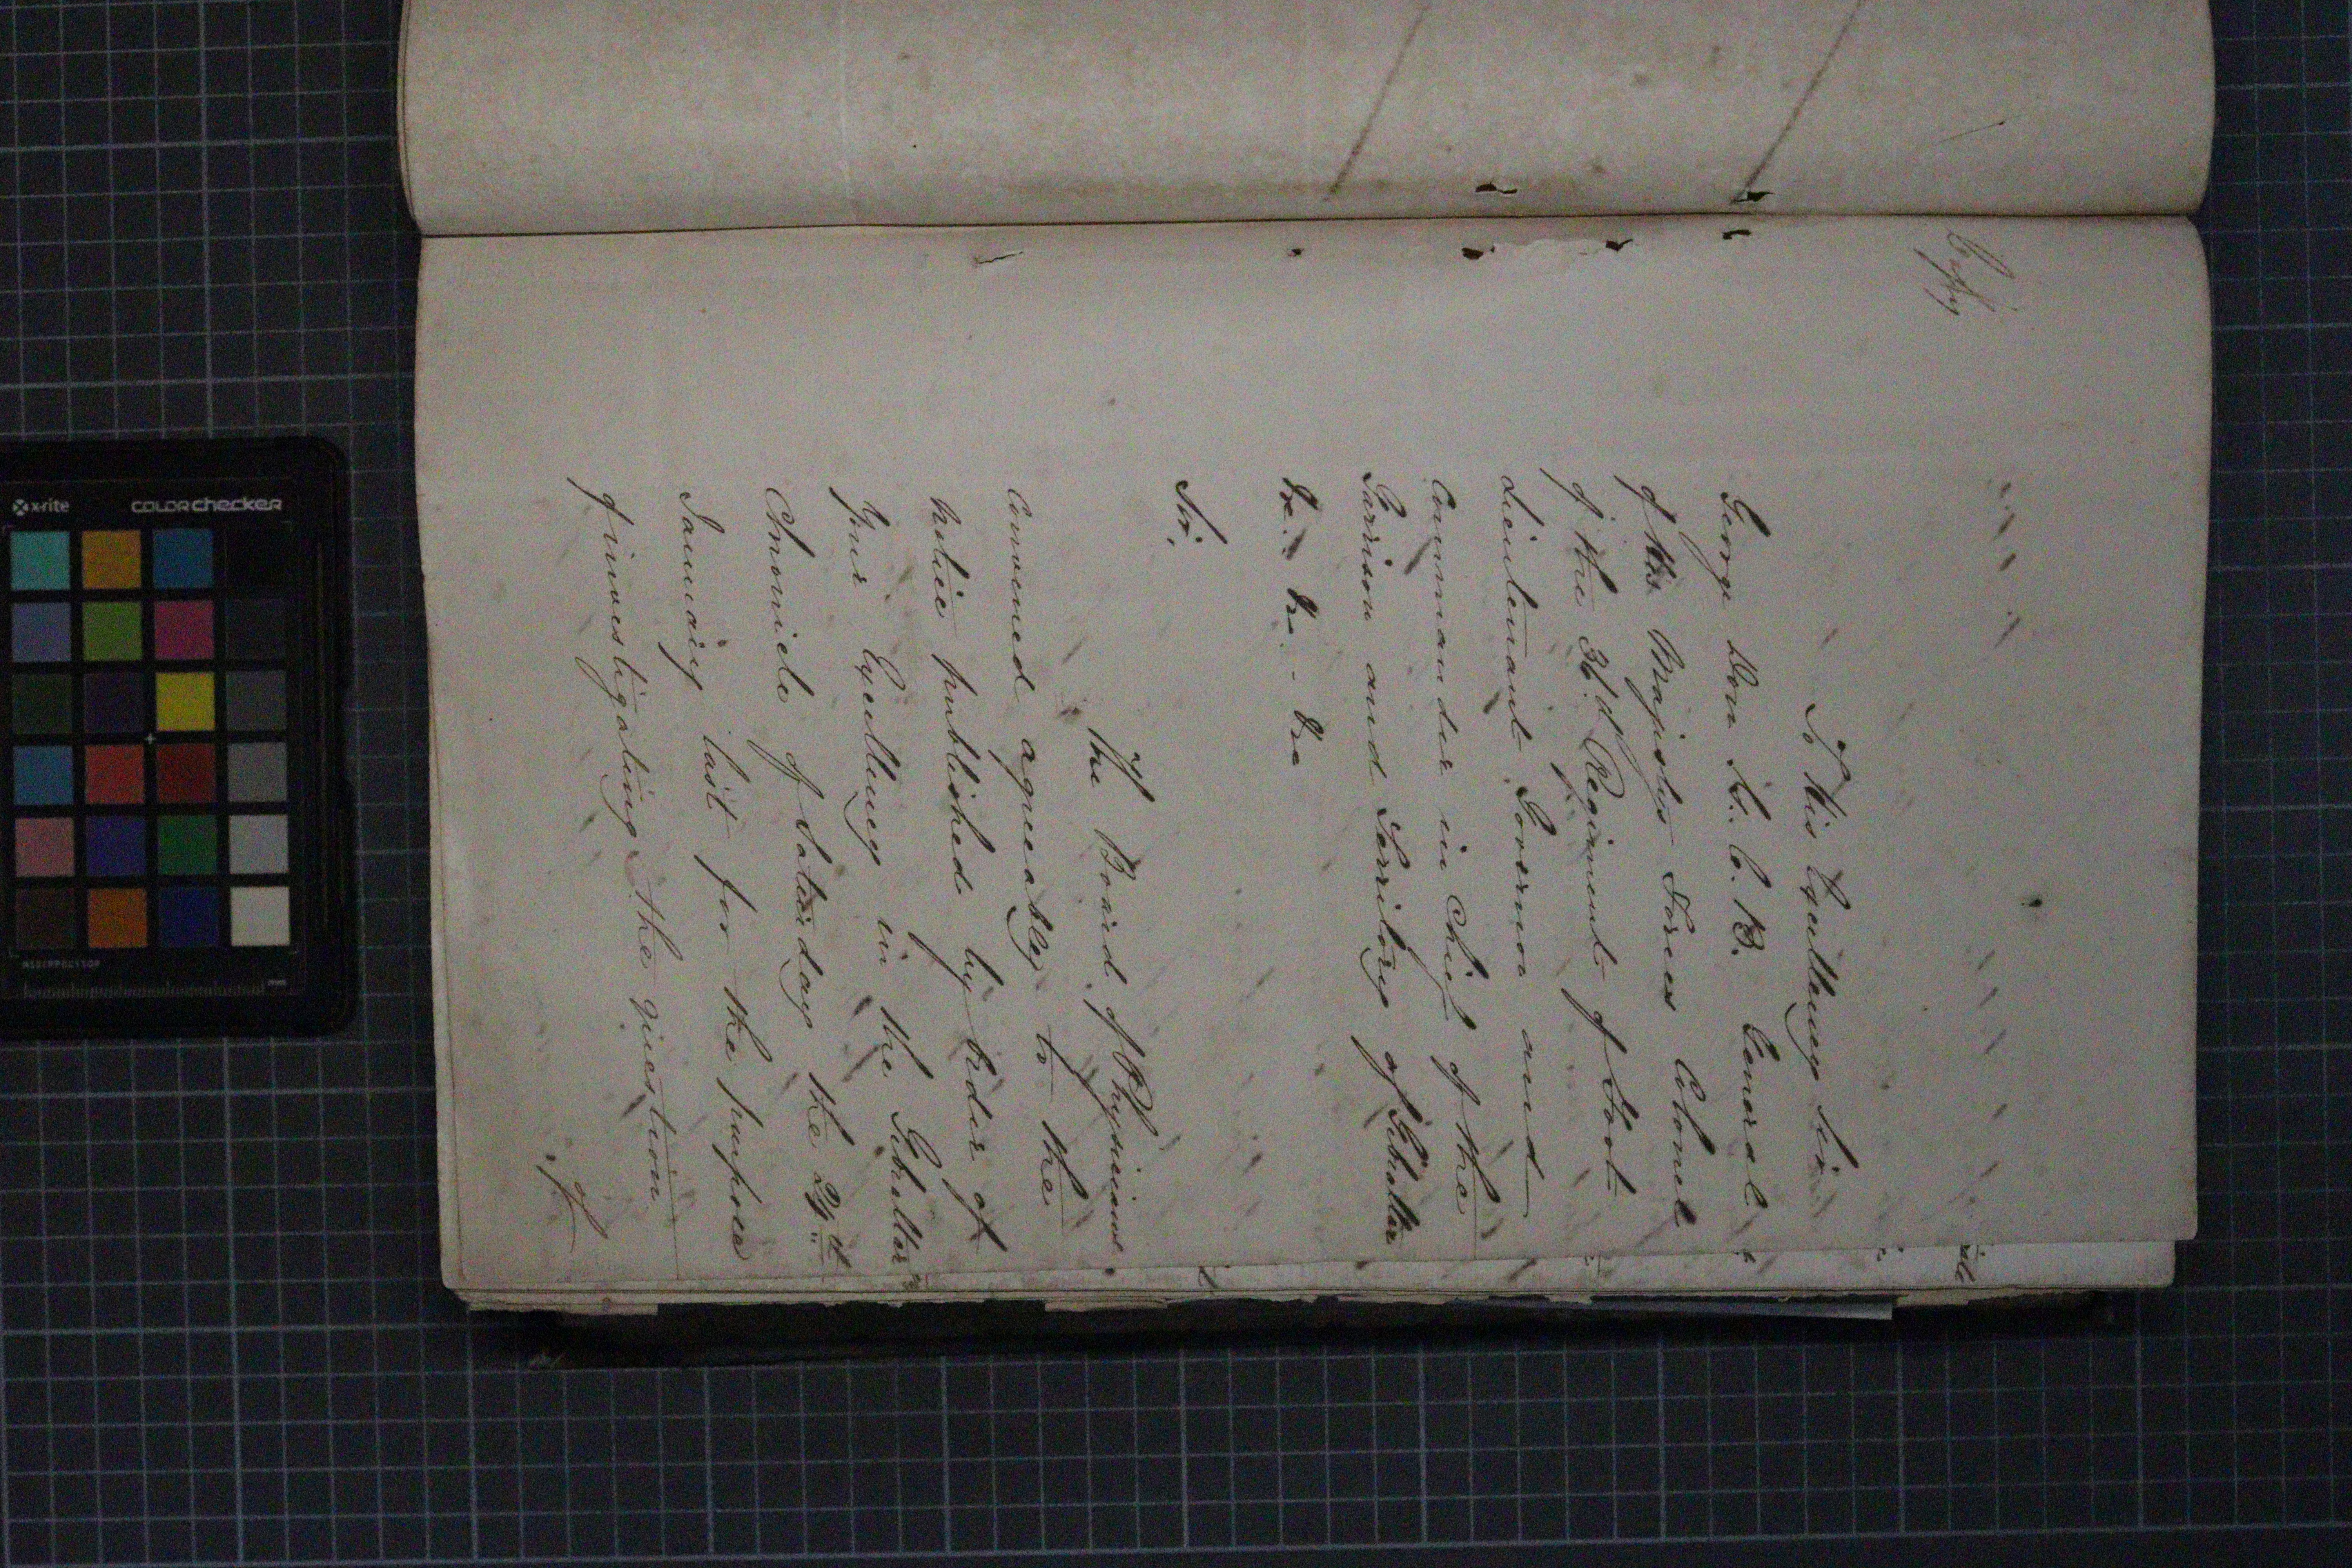 Copy
To His Excellency Sir
George Don K. C. B. General
of His Majestys Forces Colonel
of the 36th Regiment of Foot
Lieutenant Governor and
Commander in Chief of the
Garrison and Territory of Gibraltar
&c. &c. - &c
Sir,
The Board of Physicians
Convened agreeably to the
Notice published by order of
Your Excellency in the Gibraltar
Chronicle of Saturday the
January last for the purpose
of investigating the question
of
x-rite
COLORchecker
mm